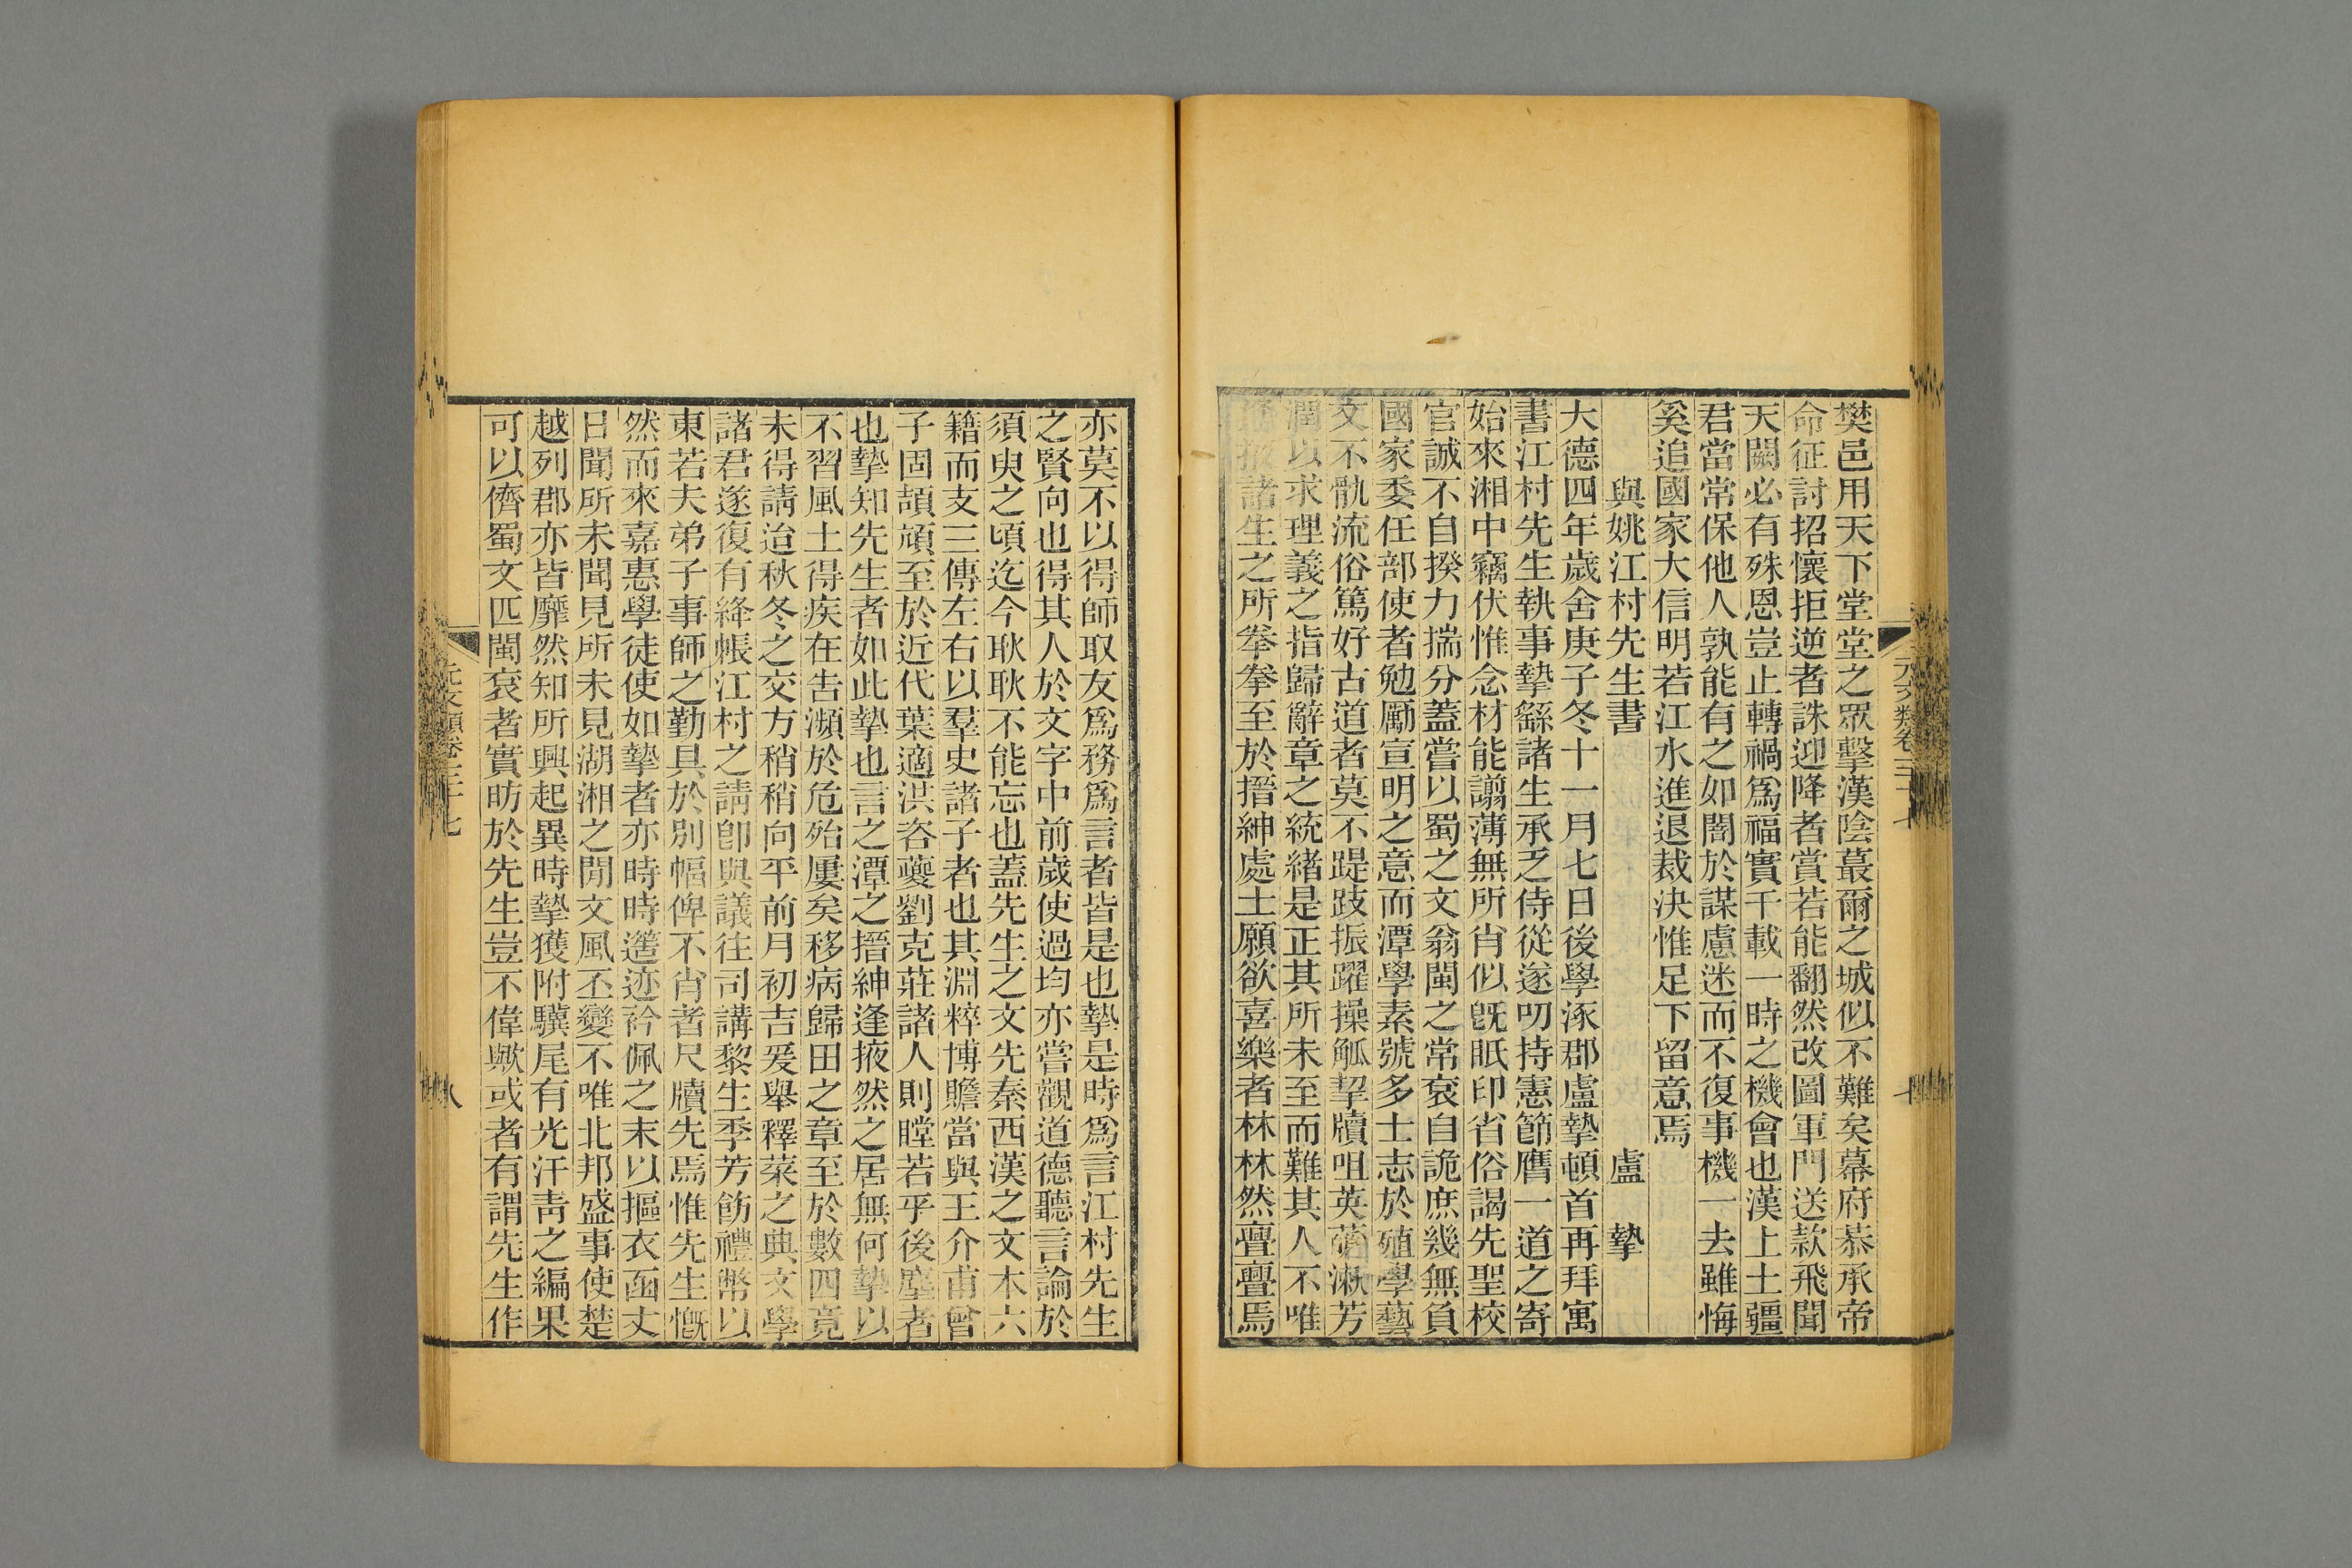 樊邑用天下堂堂之眾擊漢陰蕞爾之城似不難矣幕府恭承帝
命征討招懷拒逆者誅迎降者賞若能翻然改圖軍門送款飛聞
天闕必有殊恩豈止轉禍爲福實千載一時之機會也漢上土疆
君當常保他人孰能有之如闇於謀慮迷而不復事機一去雖悔
奚追國家大信明若江水進退裁決惟足下留意焉
與姚江村先生書 盧摯
大德四年歲舍庚子冬十一月七日後學涿郡盧摯頓首再拜寓
書江村先生執事摯繇諸生承乏侍從遂叨持憲節膺一道之寄
始來湘中竊伏惟念材能譾薄無所肖似旣眂印省俗謁先聖校
官誠不自揆力揣分蓋嘗以蜀之文翁閩之常袞自詭庶幾無負
國家委任部使者勉勵宣明之意而潭學素號多士志於殖學藝
文不骩流俗篤好古道者莫不踶跂振躍操觚挈牘咀英漱芳
潤以求理義之指歸辭章之統緒是正其所未至而難其人不唯
逢掖諸生之所拳拳至於搢紳處士願欲喜樂者林林然亹亹焉
元文類卷三十七
七
亦莫不以得師取友爲務爲言者皆是也摯是時爲言江村先生
之賢向也得其人於文字中前歲使過均亦嘗觀道德聽言論於
須臾之頃迄今耿耿不能忘也蓋先生之文先秦西漢之文本六
籍而支三傳左右以羣史諸子者也其淵粹博贍當與王介甫曾
子固頡頏至於近代葉適洪咨夔劉克莊諸人則瞠若乎後塵者
也摯知先生者如此摯也言之潭之搢紳逢掖然之居無何摯以
不習風土得疾在告瀕於危殆屢矣移病歸田之章至於數四竟
未得請迨秋冬之交方稍稍向平前月初吉爰舉釋菜之典文學
諸君遂復有絳帳江村之請卽與議往司講黎生季芳飭禮幣以
東若夫弟子事師之勤具於別幅俾不肖者尺牘先焉惟先生慨
然而來嘉惠學徒使如摯者亦時時邁迹衿佩之末以摳衣函丈
日聞所未聞見所未見湖湘之閒文風丕變不唯北邦盛事使楚
越列郡亦皆靡然知所興起異時摯獲附驥尾有光汗靑之編果
可以儕蜀文匹閩袞者實昉於先生豈不偉歟或者有謂先生作
元文類卷三十七
八